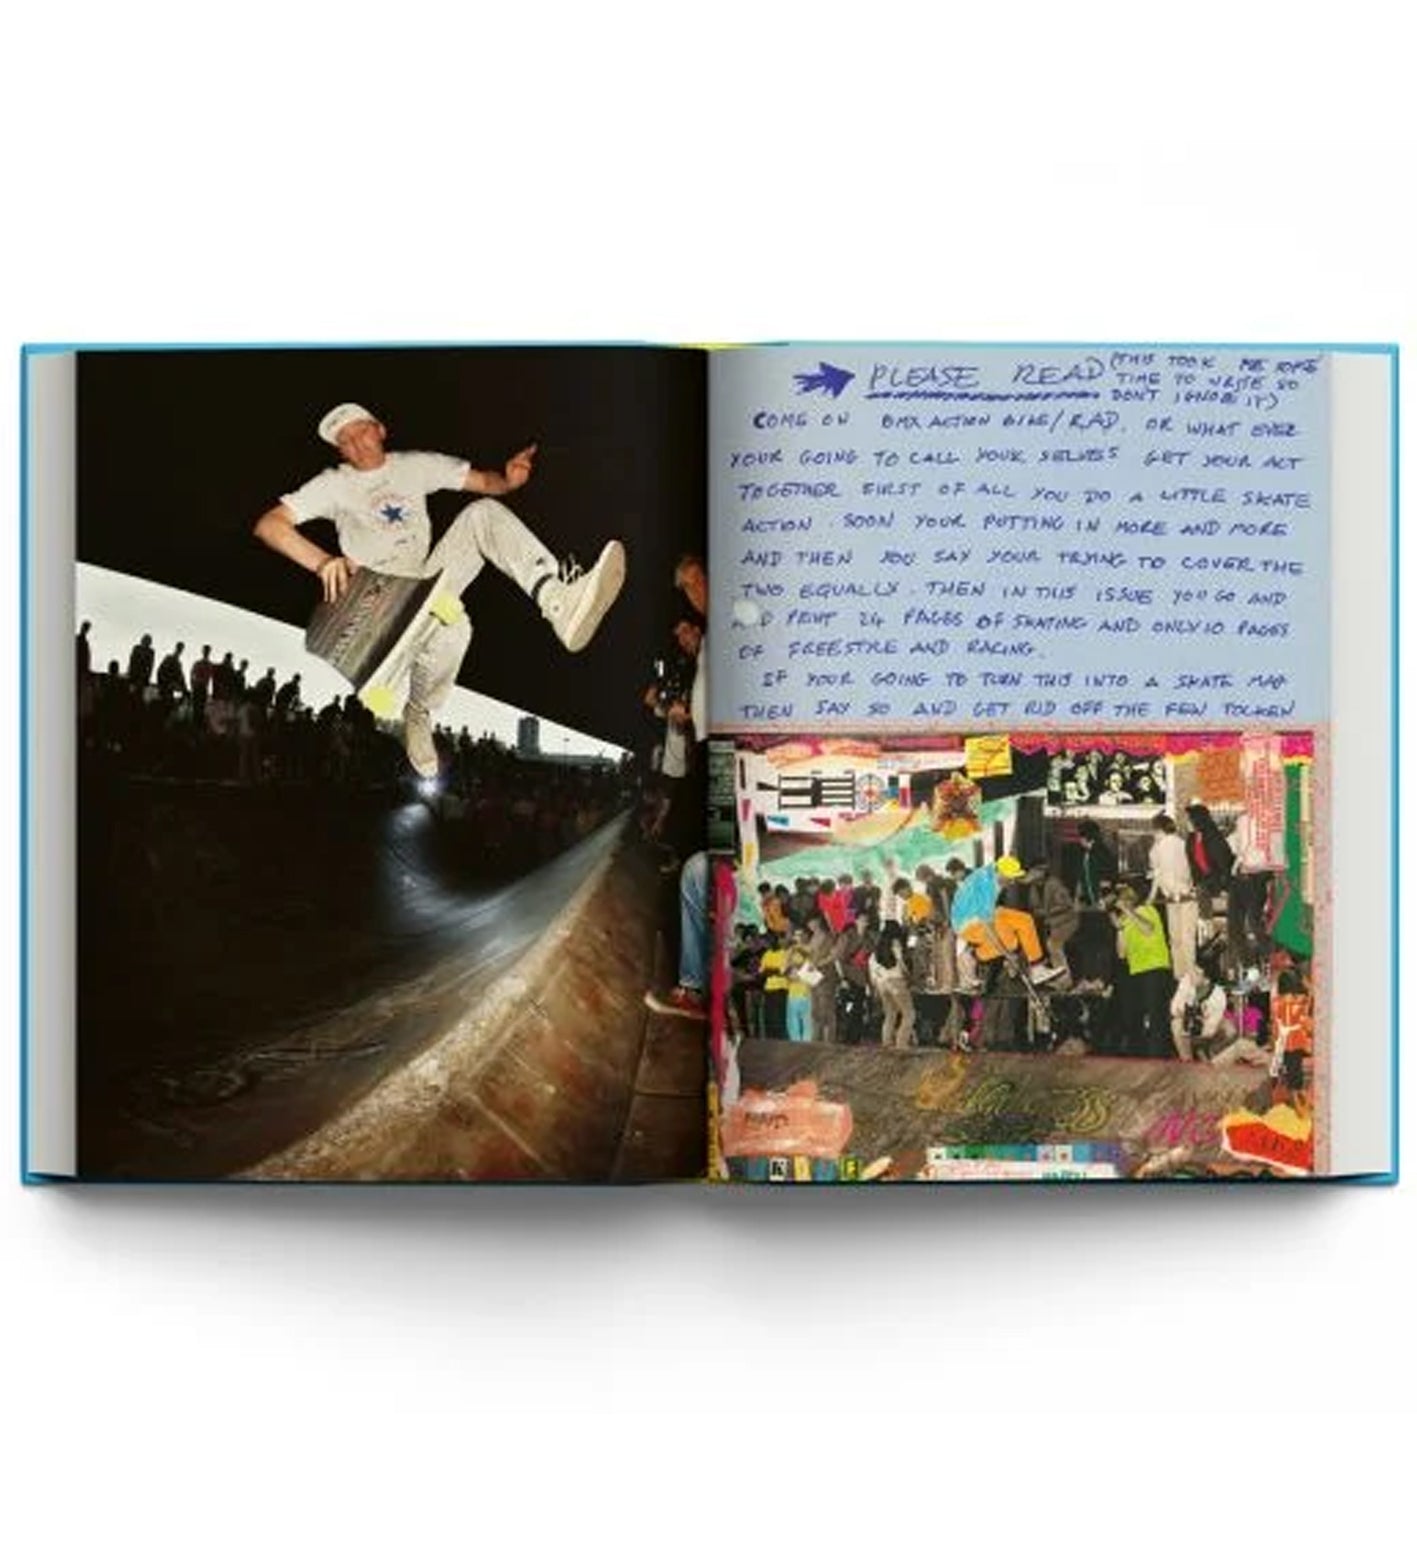 PLEASE READ (THIS TOOK ME SOME
TIME TO WRITE SO
DONT IGNORE IT)
COME ON BMX ACTION BIKE/RAD, OR WHAT EVER
YOUR GOING TO CALL YOUR SELVES GET YOUR ACT
TOGETHER FIRST OF ALL YOU DO A LITTLE SKATE
ACTION. SOON YOUR PUTTING IN MORE AND MORE
AND THEN YOU SAY YOUR TRYING TO COVER THE
TWO EQUALLY. THEN IN THIS ISSUE YOU GO AND
PRINT 24 PAGES OF SKATING AND ONLY 10 PAGES
OF FREESTYLE AND RACING.
IF YOUR GOING TO TURN THIS INTO A SKATE MAG
THEN SAY SO AND GET RID OFF THE FEW TOCKEN